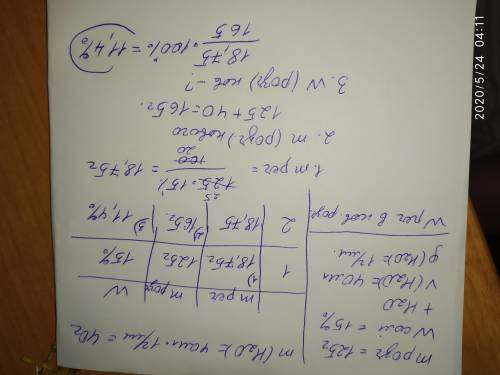 m розг = 125г
W соли = 15%
+ H2O
V(H2O) = 40мл
ρ(H2O) = 1г/мл
W реч в нов. розг
m(H2O) = 40мл · 1г/мл = 40г
m реч | m розг | W
1 | 1) 18,75г | 125г | 15%
2 | 18,75 | 2) 165г. | 3) 11,4%
1. m реч = 125 · 15% / 100 = 18,75г
2. m (розг) нового
125 + 40 = 165г.
3. W (розг) нов - ?
18,75 / 165 · 100% = 11,4%
2020/5/24 04:11